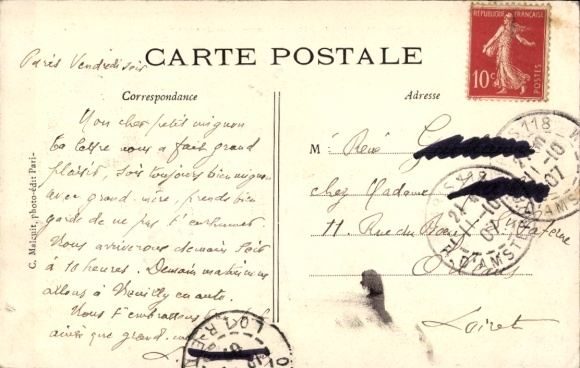 Paris Vendredi soir
CARTE POSTALE
RÉPUBLIQUE FRANÇAISE
10c
POSTES
Correspondance
Adresse
Mon cher petit mignon
Ta lettre nous a fait grand
plaisir, sois toujours bien mignon
avec grand-mère, prends bien
garde de ne pas t'enrhumer.
Nous arriverons demain soir
à 10 heures. Demain matin nous
allons à Neuilly en auto.
Nous t'embrassons
ainsi que grand
L.
M. René
chez Madame
11 Rue du Bœuf
Orléans
Loiret
C. Malcuit, photo-édit Paris
118
11-10
07
AMSTERDAM
11-10
07
AMSTE
LOIRET